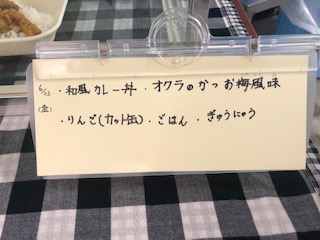 6/23 ・和風カレー丼・オクラのかつお梅風味
(金) ・りんご(カット缶)・ごはん・ぎゅうにゅう